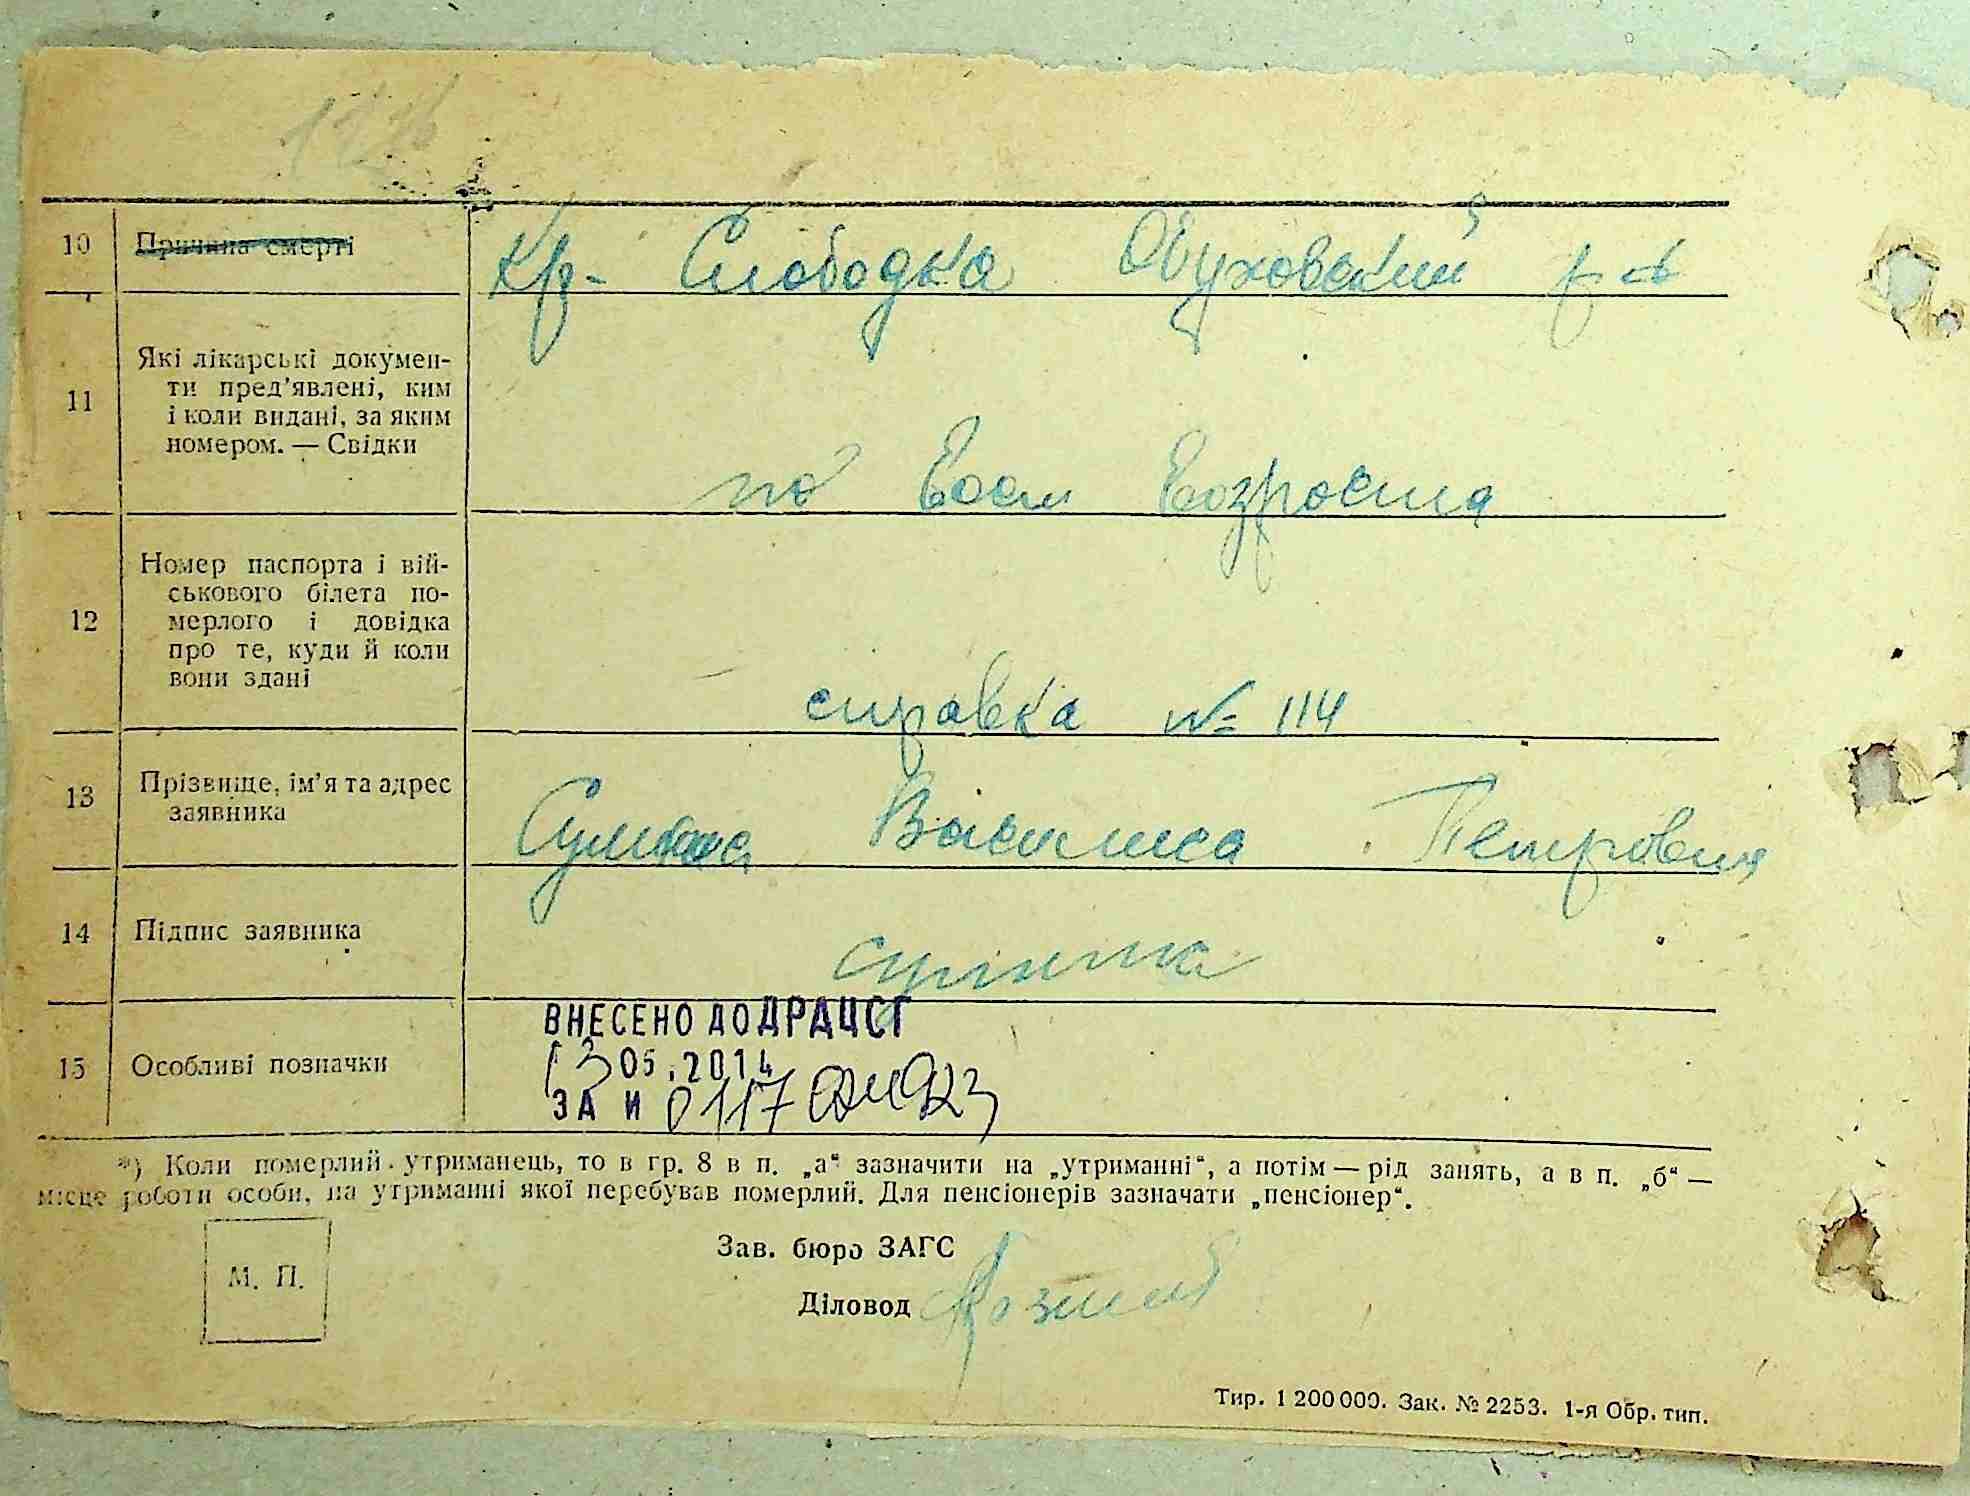 10 Причина смерті Кр- Слободка Обуховский р-н
11 Які лікарські докумен-
ти пред'явлені, ким
і коли видані, за яким
номером. — Свідки
по Воем
12 Номер паспорта і вій-
ськового білета по-
мерлого і довідка
про те, куди й коли
вони здані
справка № 114
13 Прізвище, ім'я та адрес
заявника
Василиса Петровна
14 Підпис заявника
15 Особливі позначки
ВНЕСЕНО ДО ДРАЦСГ
13 05.2014
ЗА И 0117
*) Коли померлий утриманець, то в гр. 8 в п. „а“ зазначити на „утриманні“, а потім — рід занять, а в п. „б“ —
місце роботи особи, на утриманні якої перебував померлий. Для пенсіонерів зазначати „пенсіонер“.
М. П.
Зав. бюро ЗАГС
Діловод
Тир. 1 200 000. Зак. № 2253. 1-я Обр. тип.